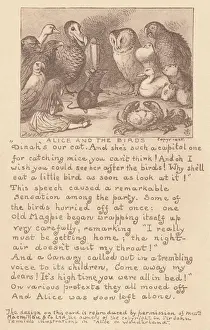 ALICE AND THE BIRDS
"Dinah's our cat. And she's such a capital one
for catching mice, you can't think! And oh I
wish you could see her after the birds! Why she'll
eat a little bird as soon as look at it!"
This speech caused a remarkable
sensation among the party. Some of
the birds hurried off at once: one
old Magpie began wrapping itself up
very carefully, remarking "I really
must be getting home; the night-
air doesn't suit my throat!"
And a Canary called out in a trembling
voice to its children, Come away my
dears! It's high time you were all in bed!"
On various pretexts they all moved off
And Alice was soon left alone.
The design on this card is reproduced by permission of Messrs
Macmillan & Co
Tenniel's illustrations to "Alice in Wonderland"